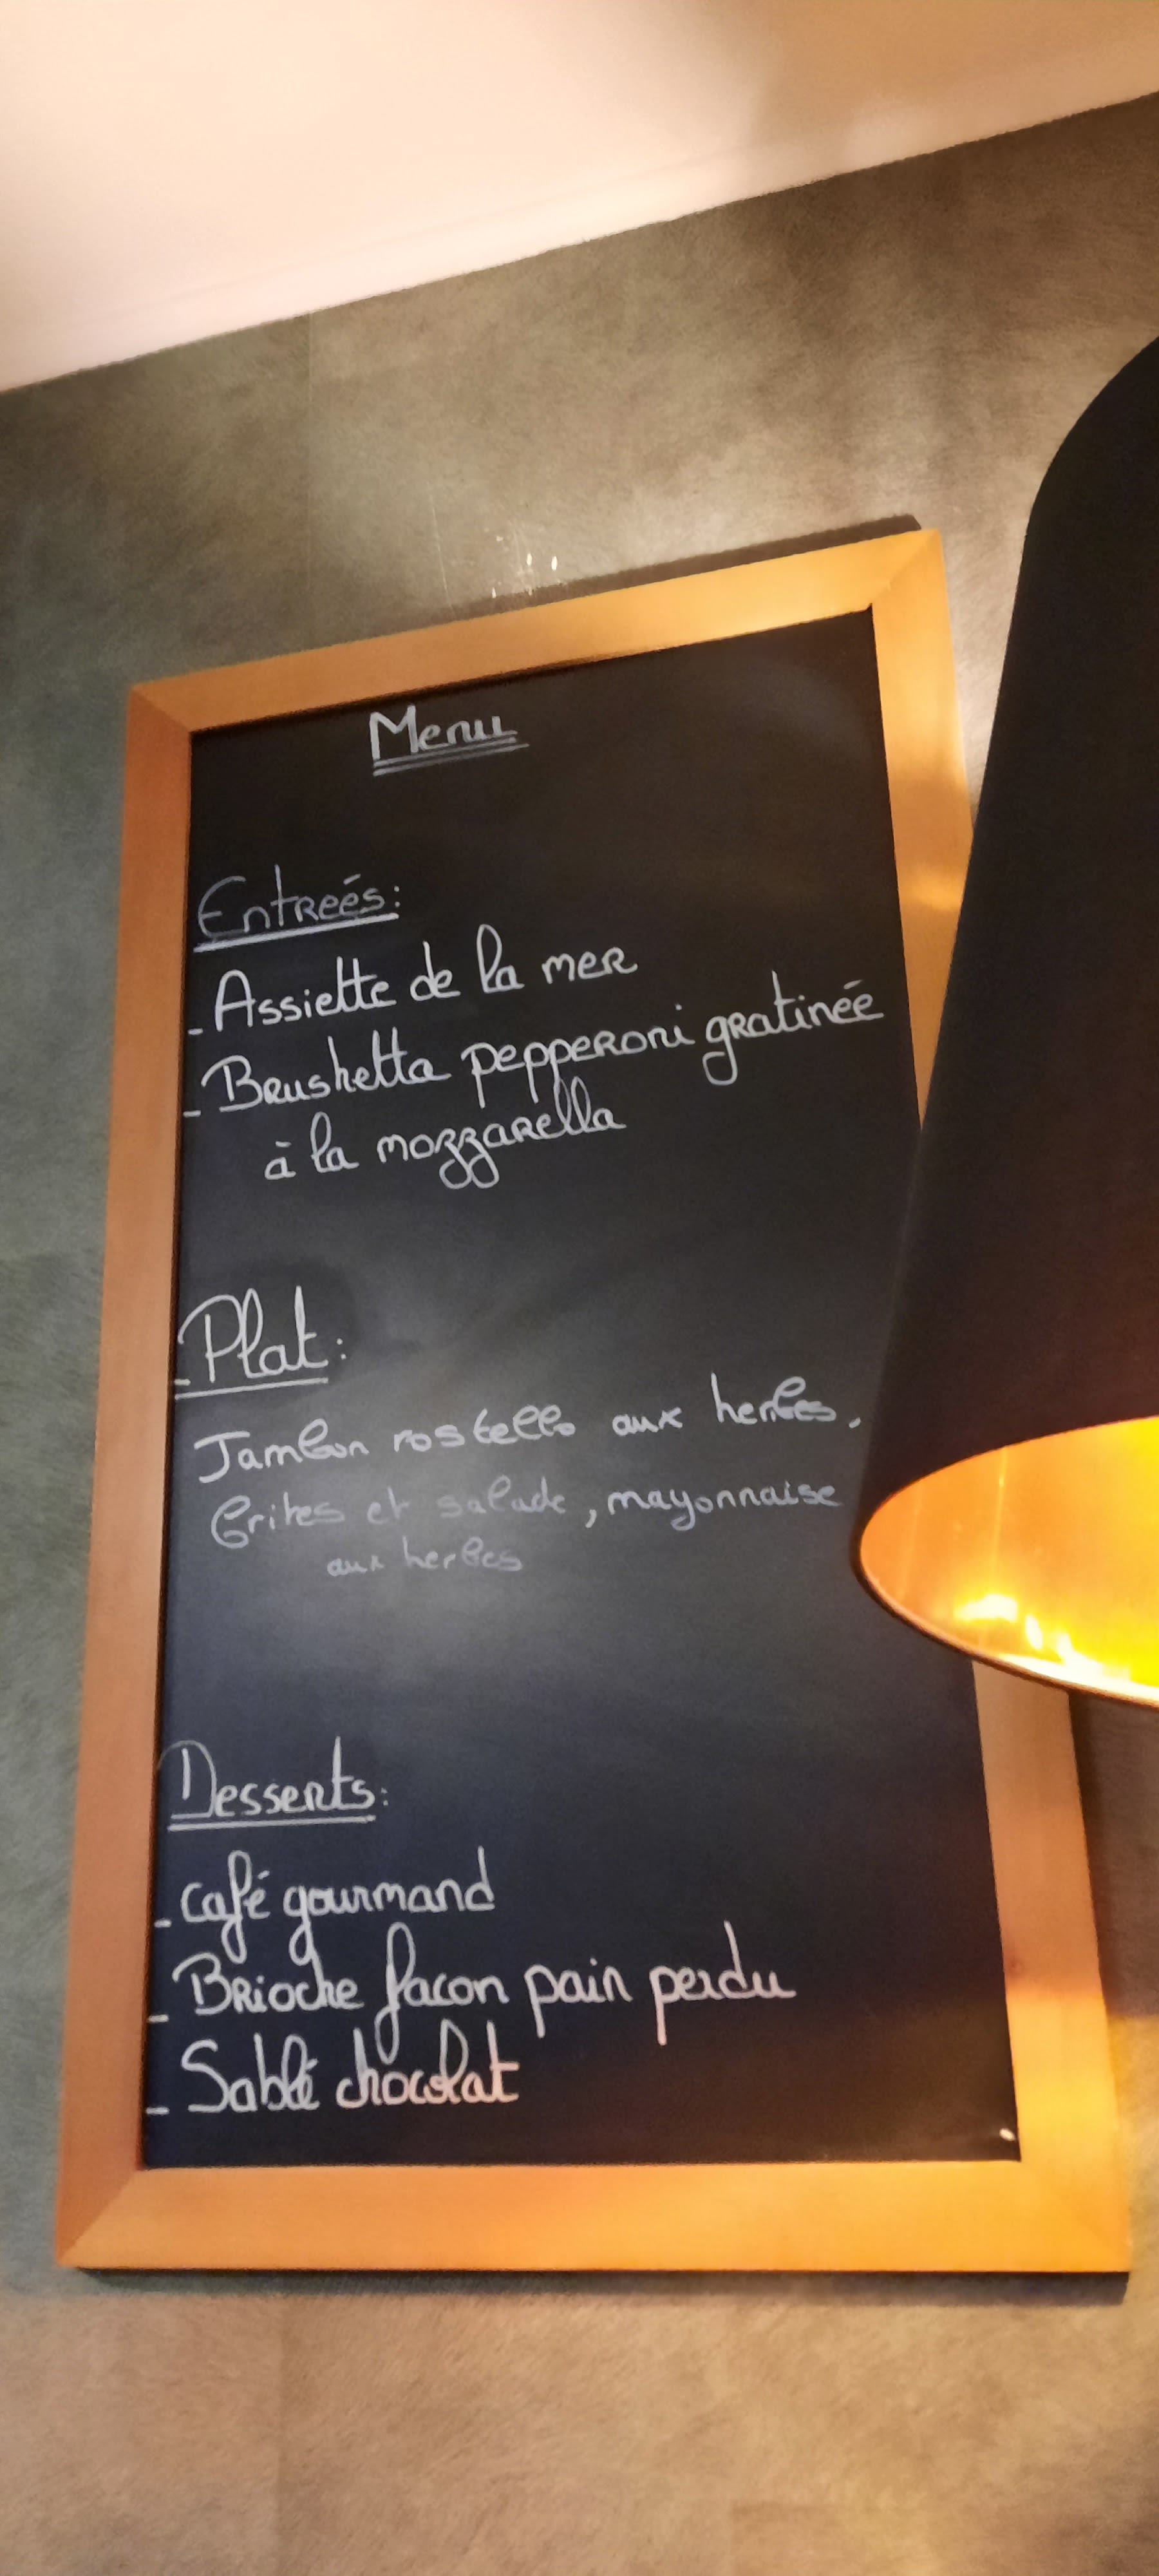 Menu
Entreés:
- Assiette de la mer
- Brushetta pepperoni gratinée
à la mozzarella
- Plat:
Jambon rostello aux herbes,
frites et salade, mayonnaise
aux herbes
Desserts:
- Café gourmand
- Brioche facon pain perdu
- Sablé chocolat